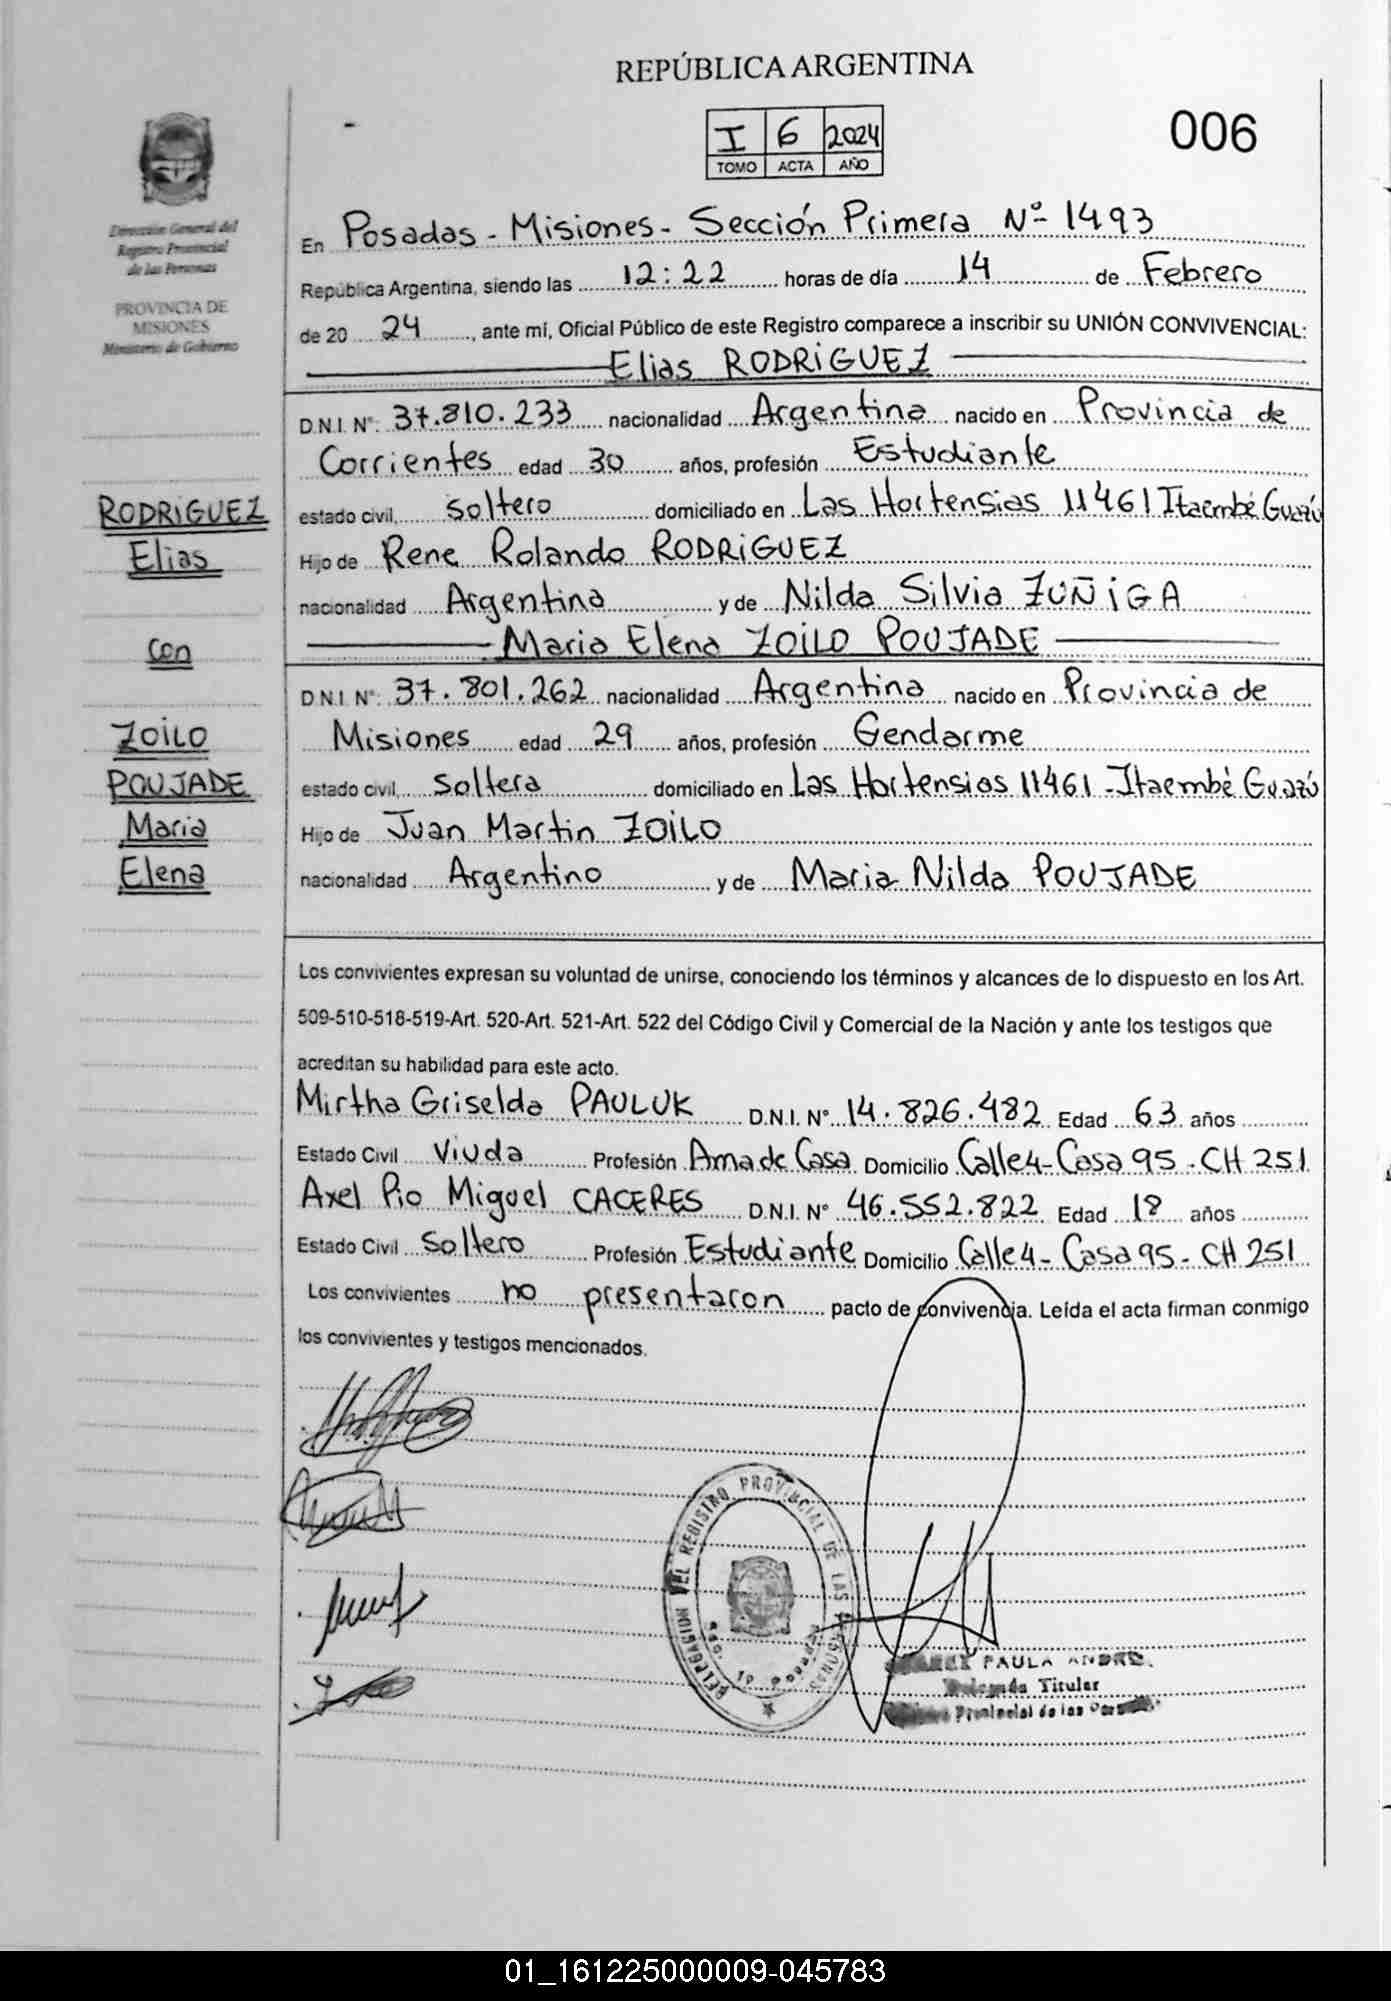 REPÚBLICA ARGENTINA
I 6 2024
TOMO ACTA AÑO
006
Dirección General del
Registro Provincial
de las Personas
PROVINCIA DE
MISIONES
Ministerio de Gobierno
En Posadas - Misiones - Sección Primera Nº 1493
República Argentina, siendo las 12:22 horas de día 14 de Febrero
de 20 24, ante mí, Oficial Público de este Registro comparece a inscribir su UNIÓN CONVIVENCIAL:
Elias RODRIGUEZ
D.N.I. Nº: 37.810.233 nacionalidad Argentina nacido en Provincia de
Corrientes edad 30 años, profesión Estudiante
estado civil, soltero domiciliado en Las Hortensias 11461 Itaembé Guazú
Hijo de Rene Rolando RODRIGUEZ
nacionalidad Argentina y de Nilda Silvia ZUÑIGA
Maria Elena ZOILO POUJADE
D.N.I. Nº: 37.801.262 nacionalidad Argentina nacido en Provincia de
Misiones edad 29 años, profesión Gendarme
estado civil, Soltera domiciliado en Las Hortensias 11461 - Itaembé Guazú
Hijo de Juan Martin ZOILO
nacionalidad Argentino y de Maria Nilda POUJADE
RODRIGUEZ
Elias
con
ZOILO
POUJADE
Maria
Elena
Los convivientes expresan su voluntad de unirse, conociendo los términos y alcances de lo dispuesto en los Art.
509-510-518-519-Art. 520-Art. 521-Art. 522 del Código Civil y Comercial de la Nación y ante los testigos que
acreditan su habilidad para este acto.
Mirtha Griselda PAULUK D.N.I. Nº 14.826.482 Edad 63 años
Estado Civil Viuda Profesión Ama de Casa Domicilio Calle 4 - Casa 95 - CH 251
Axel Pio Miguel CACERES D.N.I. Nº 46.552.822 Edad 18 años
Estado Civil Soltero Profesión Estudiante Domicilio Calle 4 - Casa 95 - CH 251
Los convivientes no presentaron pacto de convivencia. Leída el acta firman conmigo
los convivientes y testigos mencionados.
DELEGACION DEL REGISTRO PROVINCIAL DE LAS PERSONAS
PAULA ANDRE
Delegada Titular
Provincial de las
01_161225000009-045783